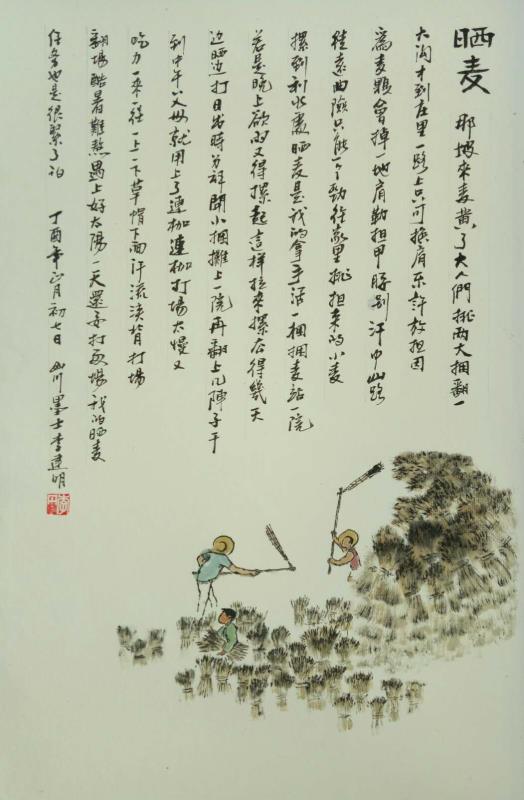 晒麦
那坡来麦黄了大人們挑两大捆翻一
大沟才到庄里一路上只可换肩不許放担因
為麦颗會掉一地肩勒担甲胳别汗巾山路
遠曲險只能一个勁往家里挑担来的小麦
摞到利水處晒麦是我的拿手活一捆捆麦站一院
若是晚上欲雨又得摞起這样拉来摞去得幾天
边晒边打日出時分解開小捆攤上一院再翻上几陣子干
到中午父母就用上了連枷連枷打場太慢又
吃力一来一往一上一下草帽下面汗流浃背打場
翻場酷暑難熬遇上好太陽一天還要打两場我的晒麦
任务也是很累了的 丁酉年正月初七日 山川墨士李建明